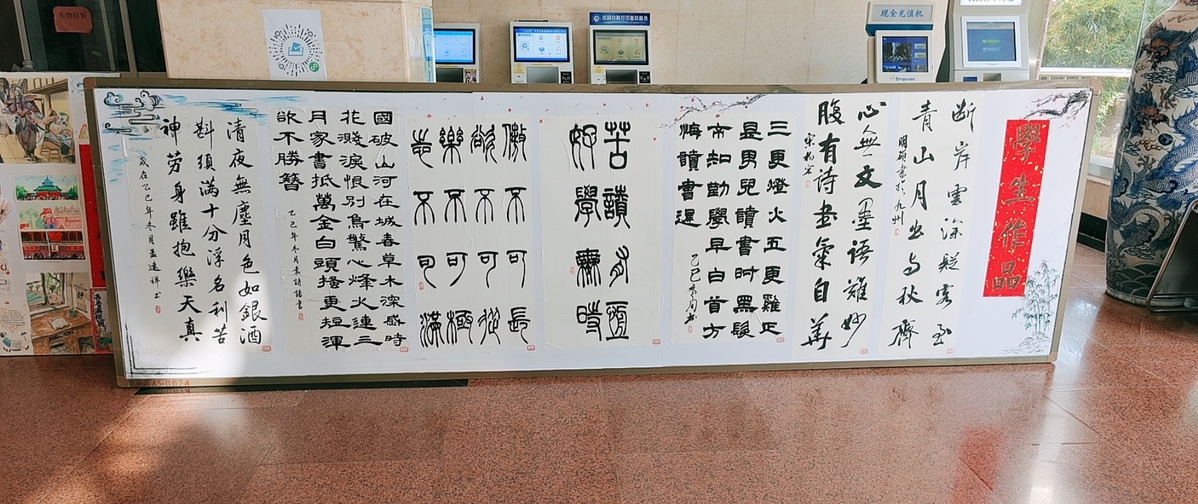 失物招领
现金充值机
學生作品
断岸雲深疑
青山月出与秋齊
明硕書於九州
心無文墨語難妙
腹有诗书氣自華
三更燈火五更雞正
是男兒讀書时黑髮
不知勤學早白首方
悔讀書遲
乙巳冬月书
苦讀有
好學無時
傲不可長
欲不可從
樂不可極
志不可滿
國破山河在城春草木深感時
花濺淚恨別鳥驚心烽火連三
月家書抵萬金白頭搔更短渾
欲不勝簪
乙巳年冬月書
清夜無塵月色如銀酒
斟須滿十分浮名利苦
神勞身雖抱樂天真
歲在乙巳年冬月孟遠祥书